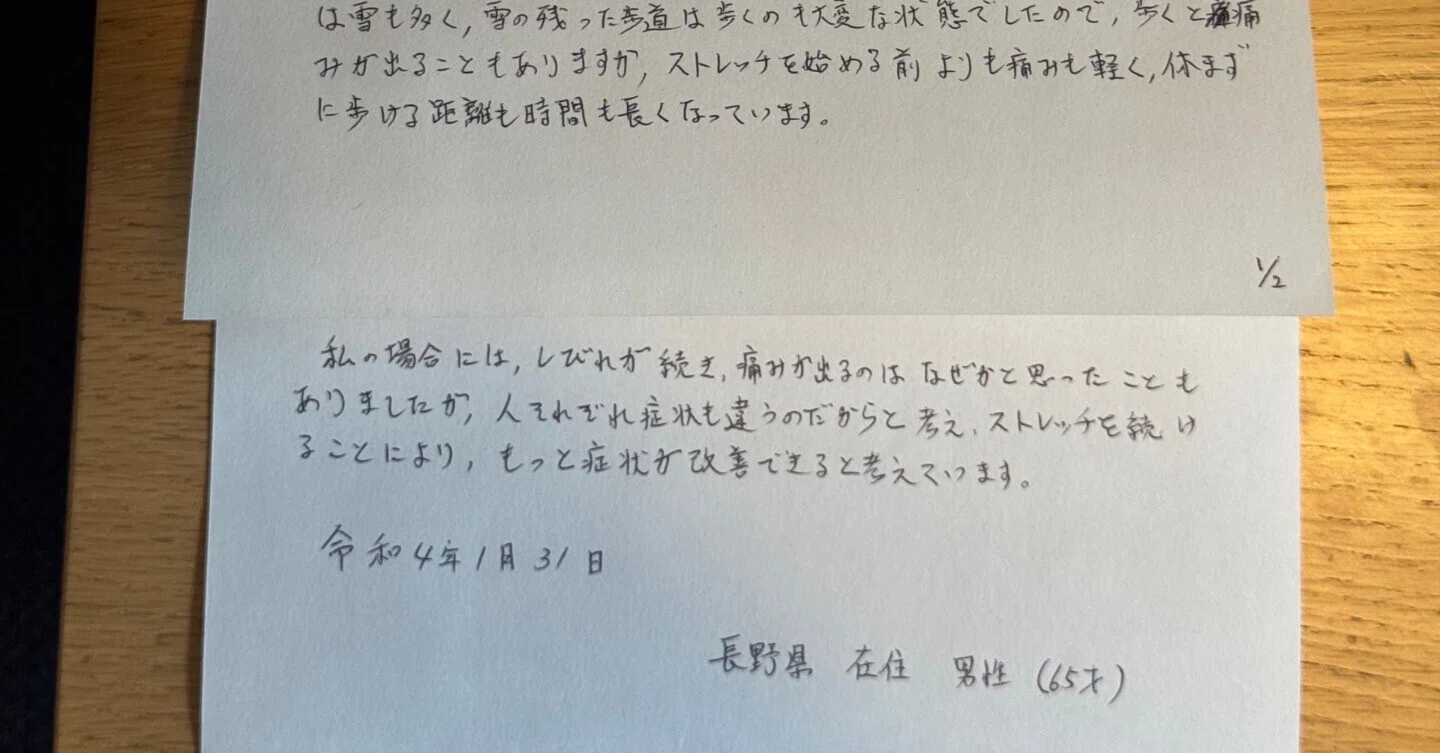 は雪も多く,雪の残った歩道は歩くのも大変な状態でしたので,歩くと痛
みが出ることもありますが,ストレッチを始める前よりも痛みも軽く,休まず
に歩ける距離も時間も長くなっています。
1/2
私の場合には,しびれが続き,痛みが出るのはなぜかと思ったことも
ありましたが,人それぞれ症状も違うのだからと考え,ストレッチを続け
ることにより,もっと症状が改善できると考えています。
令和4年1月31日
長野県 在住 男性 (65才)